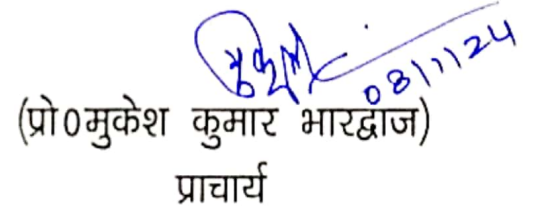 08/11/24
(प्रो0मुकेश कुमार भारद्वाज)
प्राचार्य